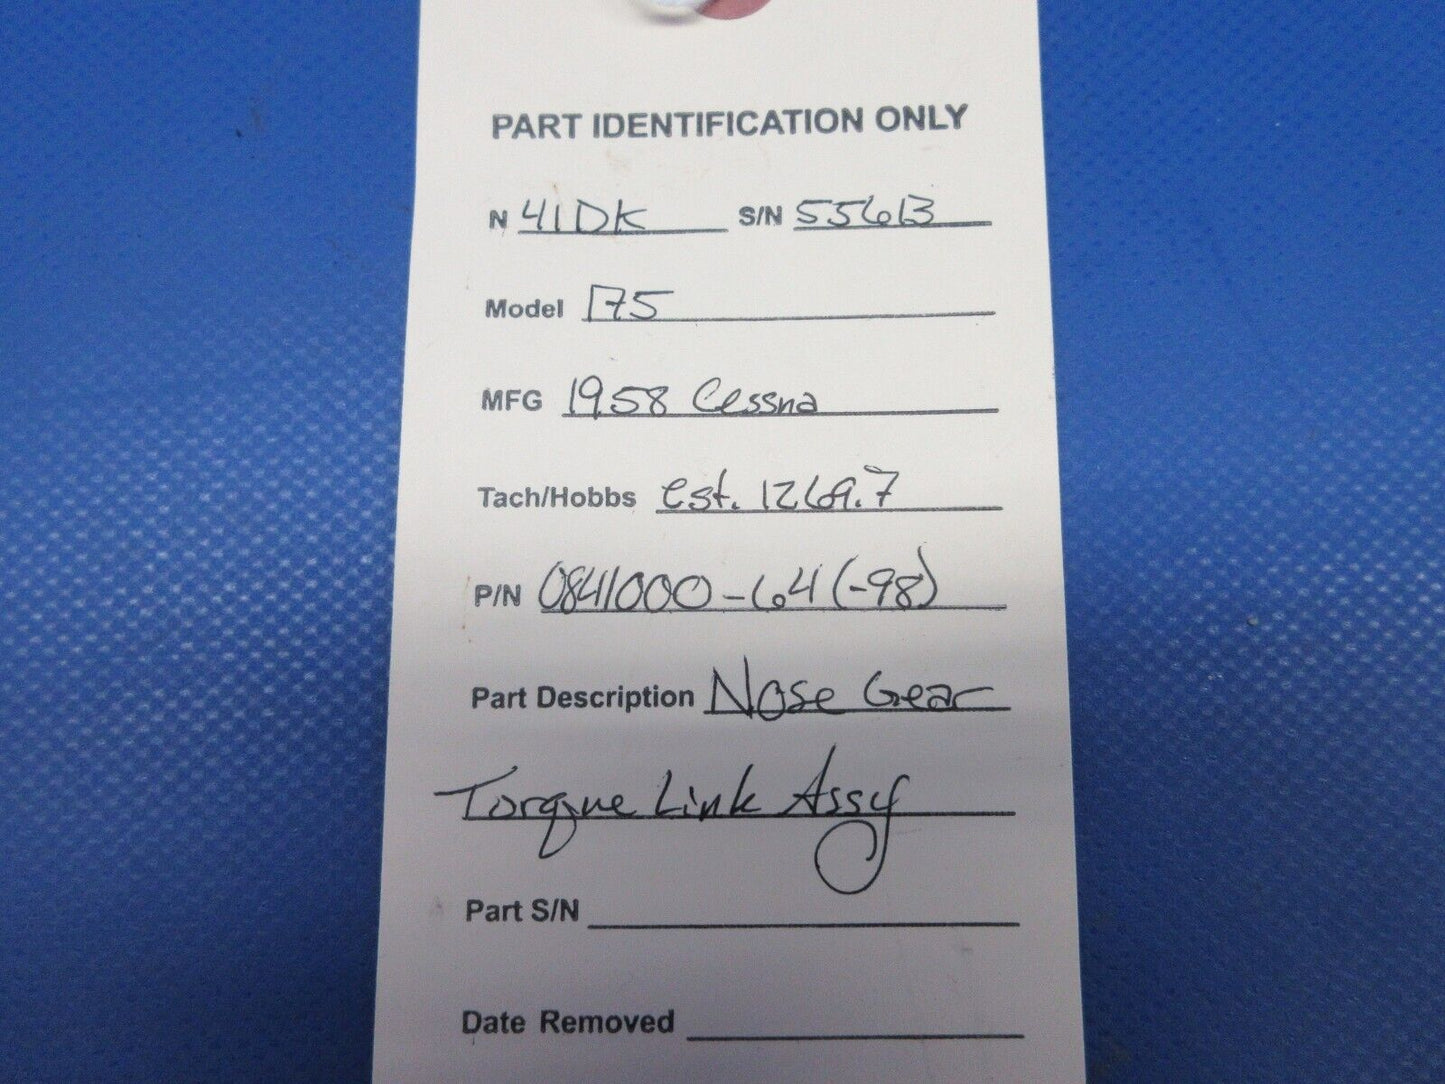 PART IDENTIFICATION ONLY
N 41DK S/N 55613
Model 175
MFG 1958 Cessna
Tach/Hobbs est. 1269.7
P/N 0841000-64(-98)
Part Description Nose Gear
Torque Link Assy
Part S/N
Date Removed